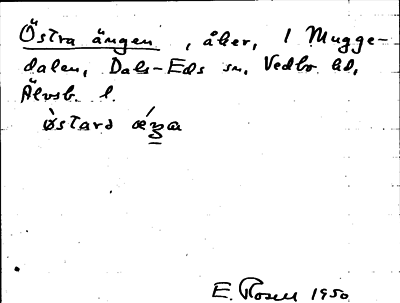 Östra ängen, åker, 1 Mugge-
dalen, Dals-Eds sn, Vedbo hd,
Älvsb. l.
E. Rosell 1950